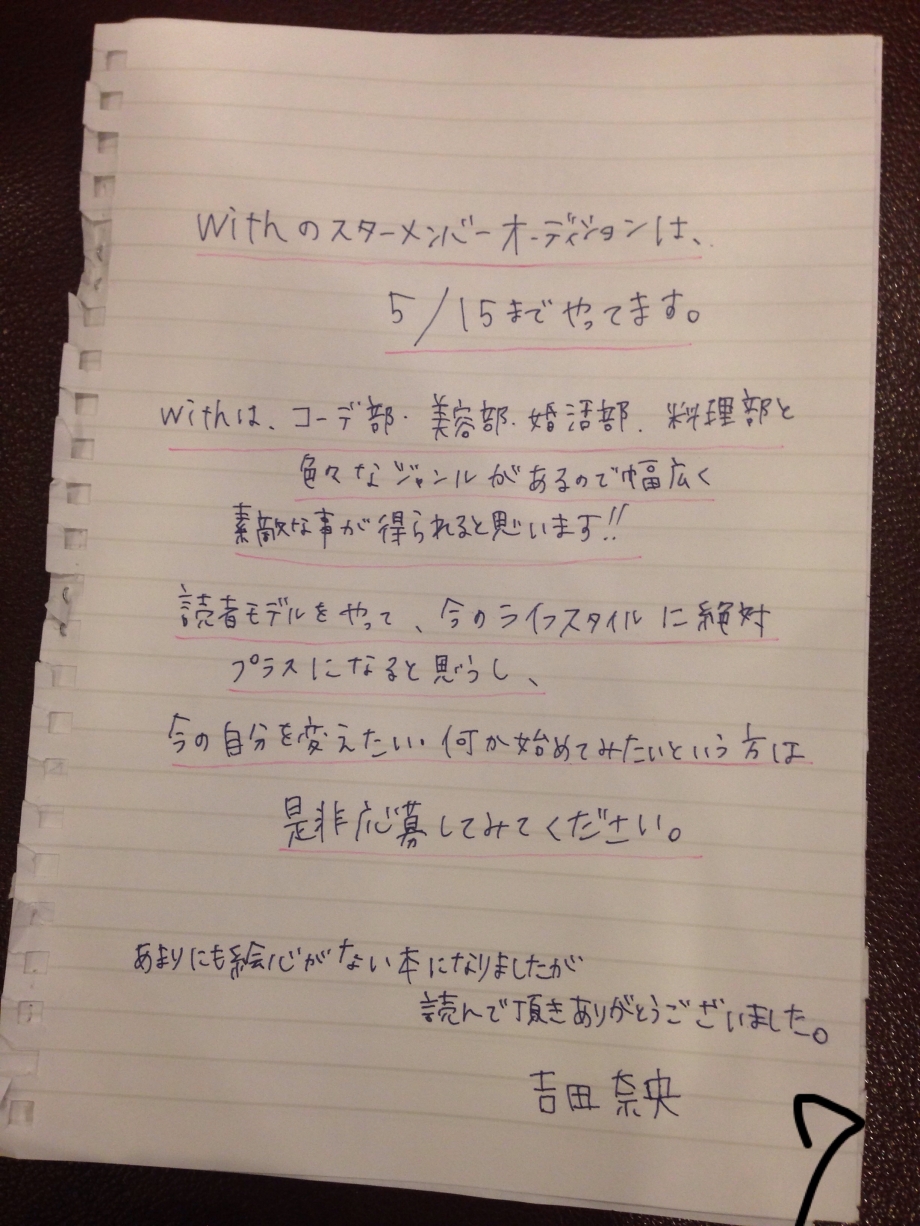 withのスターメンバーオーディションは、
5/15までやってます。
withは、コーデ部・美容部・婚活部・料理部と
色々なジャンルがあるので幅広く
素敵な事が得られると思います!!
読者モデルをやって、今のライフスタイルに絶対
プラスになると思うし、
今の自分を変えたい・何か始めてみたいという方は
是非応募してみてください。
あまりにも絵心がない本になりましたが
読んで頂きありがとうございました。
吉田奈央